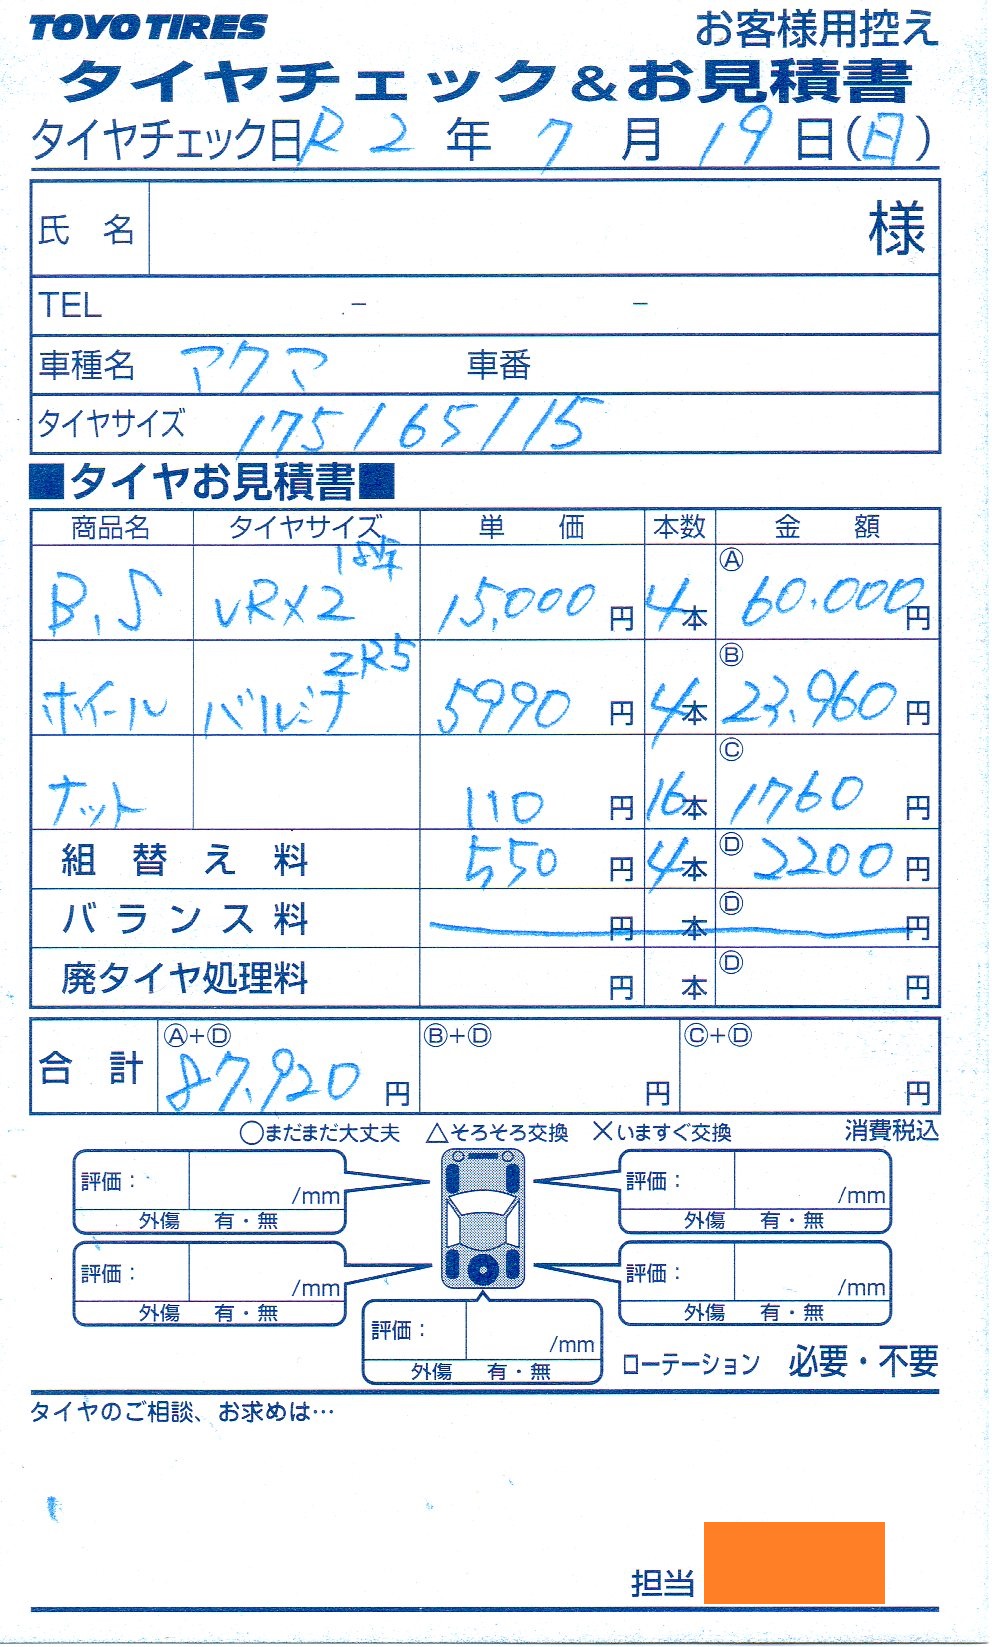 TOYO TIRES お客様用控え
タイヤチェック&お見積書
タイヤチェック日 R2年 7月 19日(日)
氏 名 様
TEL － －
車種名 アクア 車番
タイヤサイズ 175/65/15
■タイヤお見積書■
商品名 タイヤサイズ 単 価 本数 金 額
B.S VRX2 18年 15,000円 4本 Ⓐ 60.000円
ホイール バルミナ ZR5 5990円 4本 Ⓑ 23.960円
ナット 110円 16本 Ⓒ 1760円
組 替 え 料 550円 4本 Ⓓ 2200円
バ ラ ン ス 料 円 本 Ⓓ 円
廃タイヤ処理料 円 本 Ⓓ 円
合 計 Ⓐ+Ⓓ 87.920円 Ⓑ+Ⓓ 円 Ⓒ+Ⓓ 円
○まだまだ大丈夫 △そろそろ交換 ×いますぐ交換 消費税込
評価： /mm 評価： /mm
外傷 有・無 外傷 有・無
評価： /mm 評価： /mm
外傷 有・無 外傷 有・無
評価： /mm
外傷 有・無
ローテーション 必要・不要
タイヤのご相談、お求めは…
担当